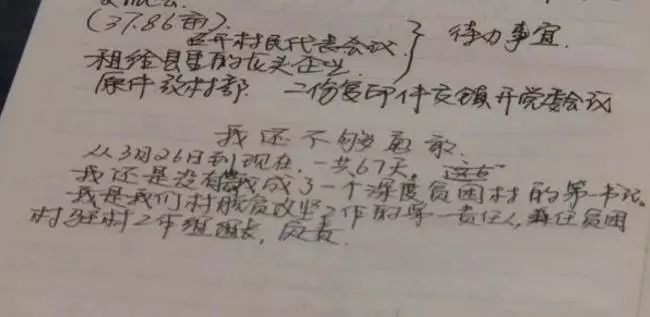 (37.86亩).
召开村民代表会议 } 待办事宜.
租给县里的龙头企业
原件放村部. 二份复印件交镇开党委会议
我还不够勇敢.
从3月26日到现在,一共67天,这
我还是没有 我成了一个深度贫困村的第一书记。
我是我们村脱贫攻坚工作的第一责任人,兼任贫困
村驻村工作组组长,负责.